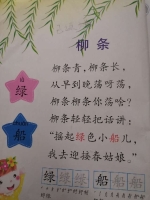 柳条
柳条青,柳条长,
从早到晚荡呀荡,
柳条柳条你荡啥?
柳条轻轻把话讲:
"摇起绿色小船儿,
我去迎接春姑娘。"
绿
船
绿
船